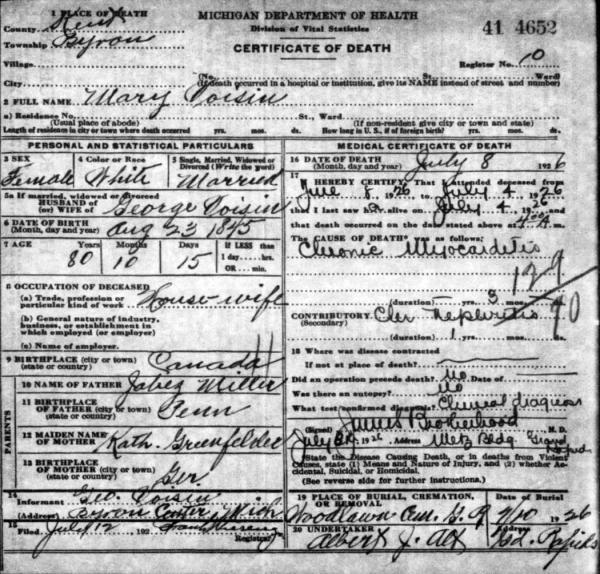 1 PLACE OF DEATH
County Kent
Township Byron
Village
City
MICHIGAN DEPARTMENT OF HEALTH
Division of Vital Statistics
CERTIFICATE OF DEATH
41 4652
Register No. 10
(No. St. Ward)
(If death occurred in a hospital or institution, give its NAME instead of street and number)
2 FULL NAME Mary Voisin
a) Residence No. St., Ward
(Usual place of abode) (If non-resident give city or town and state)
Length of residence in city or town where death occurred yrs. mos. ds. How long in U.S., if of foreign birth? yrs. mos. ds.
PERSONAL AND STATISTICAL PARTICULARS
3 SEX Female
4 Color or Race White
5 Single, Married, Widowed or Divorced (Write the word) Married
5a If married, widowed or divorced
HUSBAND of
(or) WIFE of George Voisin
6 DATE OF BIRTH (Month, day and year) Aug 23 1845
7 AGE Years Months Days If LESS than
80 10 15 1 day......hrs.
OR......min.
8 OCCUPATION OF DECEASED
(a) Trade, profession or particular kind of work House wife
(b) General nature of industry, business, or establishment in which employed (or employer)
(c) Name of employer
9 BIRTHPLACE (city or town) (state or country) Canada
PARENTS
10 NAME OF FATHER Jabez Miller
11 BIRTHPLACE OF FATHER (city or town) (state or country) Penn
12 MAIDEN NAME OF MOTHER Kath. Greenfelder
13 BIRTHPLACE OF MOTHER (city or town) (state or country) Ger.
14 Informant Geo. Voisin
(Address) Byron Center Mich
15 Filed July 12 192
Registrar
MEDICAL CERTIFICATE OF DEATH
16 DATE OF DEATH (Month, day and year) July 8 1926
17 I HEREBY CERTIFY, That I attended deceased from
June 8 26 to July 4 26
that I last saw h alive on July 4 26
that death occurred on the date stated above at M.
The CAUSE OF DEATH* was as follows:
Chronic Myocarditis
129
90
(duration) yrs. 3 mos. ds.
CONTRIBUTORY (Secondary) Chr Nephritis
(duration) 1 yrs. mos. ds.
18 Where was disease contracted
If not at place of death?
Did an operation precede death? No Date of
Was there an autopsy? No
What test confirmed diagnosis? Clinical diagnosis
(Signed) James Brotherhood M. D.
July 1926, Address Metz Bldg Grand Rapids
State the Disease Causing Death, or in deaths from Violent Causes, state (1) Means of Nature of Injury, and (2) whether Accidental, Suicidal, or Homicidal.
(See reverse side for further instructions.)
19 PLACE OF BURIAL, CREMATION, OR REMOVAL Woodlawn Cem. G. R.
Date of Burial 7/10 1926
20 UNDERTAKER Albert J. Alt
Address Gd. Rapids